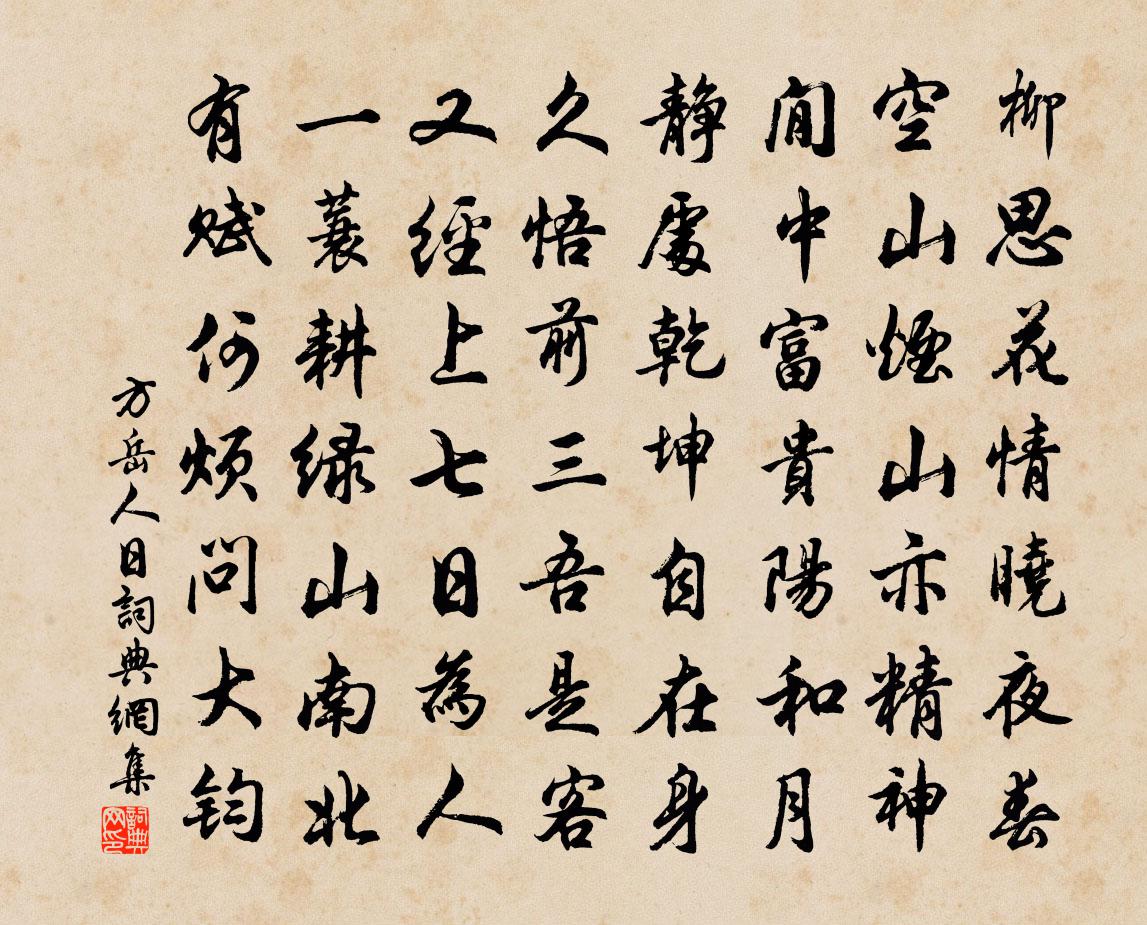 柳思花情曉夜春
空山煙山亦精神
閒中富貴陽和月
靜處乾坤自在身
久悟前三吾是客
又經上七日為人
一蓑耕緑山南北
有賦何煩問大鈞
方岳人日詞典網集
詞典网印